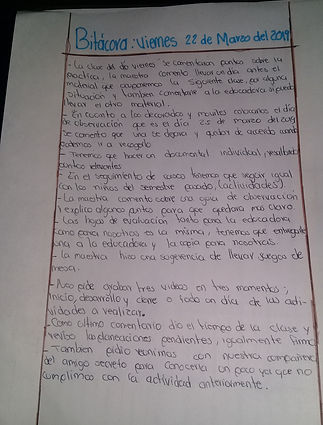 Bitácora: Viernes 22 de Marzo del 2019
- La clase del dia viernes se comentaron puntos sobre la
practica, la maestra comento llevar un dia antes el
material que ocuparemos la siguiente clase, por alguna
situacion y tambien comentarle a la educadora si puedo
llevar el otro material.
- En cuanto a los decorados y moviles colocarlos el dia
de observacion que es el dia 25 de marzo del 2019
se comento que una se dejara y ayudar de acuerdo cuando
podemos ir a recogerlo
- Tenemos que hacer un documental individual, resaltando
puntos relevantes
- En el seguimiento de casos tenemos que seguir igual
con los niños del semestre pasado, (actividades).
- La maestra comento sobre una guia de observacion
y explico algunos puntos para que quedara mas claro.
- Las hojas de evaluacion tanto para la educadora
como para nosotras es la misma, tenemos que entregarle
una a la educadora y la copia para nosotras.
- la maestra hizo una sugerencia de llevar juegos de
mesa.
- Nos pide grabar tres videos en tres momentos;
inicio, desarrollo y cierre o todo un dia de las acti-
vidades a realizar.
- Como ultimo comentario dio el tiempo de la clase y
reviso las planeaciones pendientes, igualmente firmo
- Tambien pidio reunirnos con nuestra compañera
del amigo secreto para conocerla un poco ya que no
cumplimos con la actividad anteriormente.